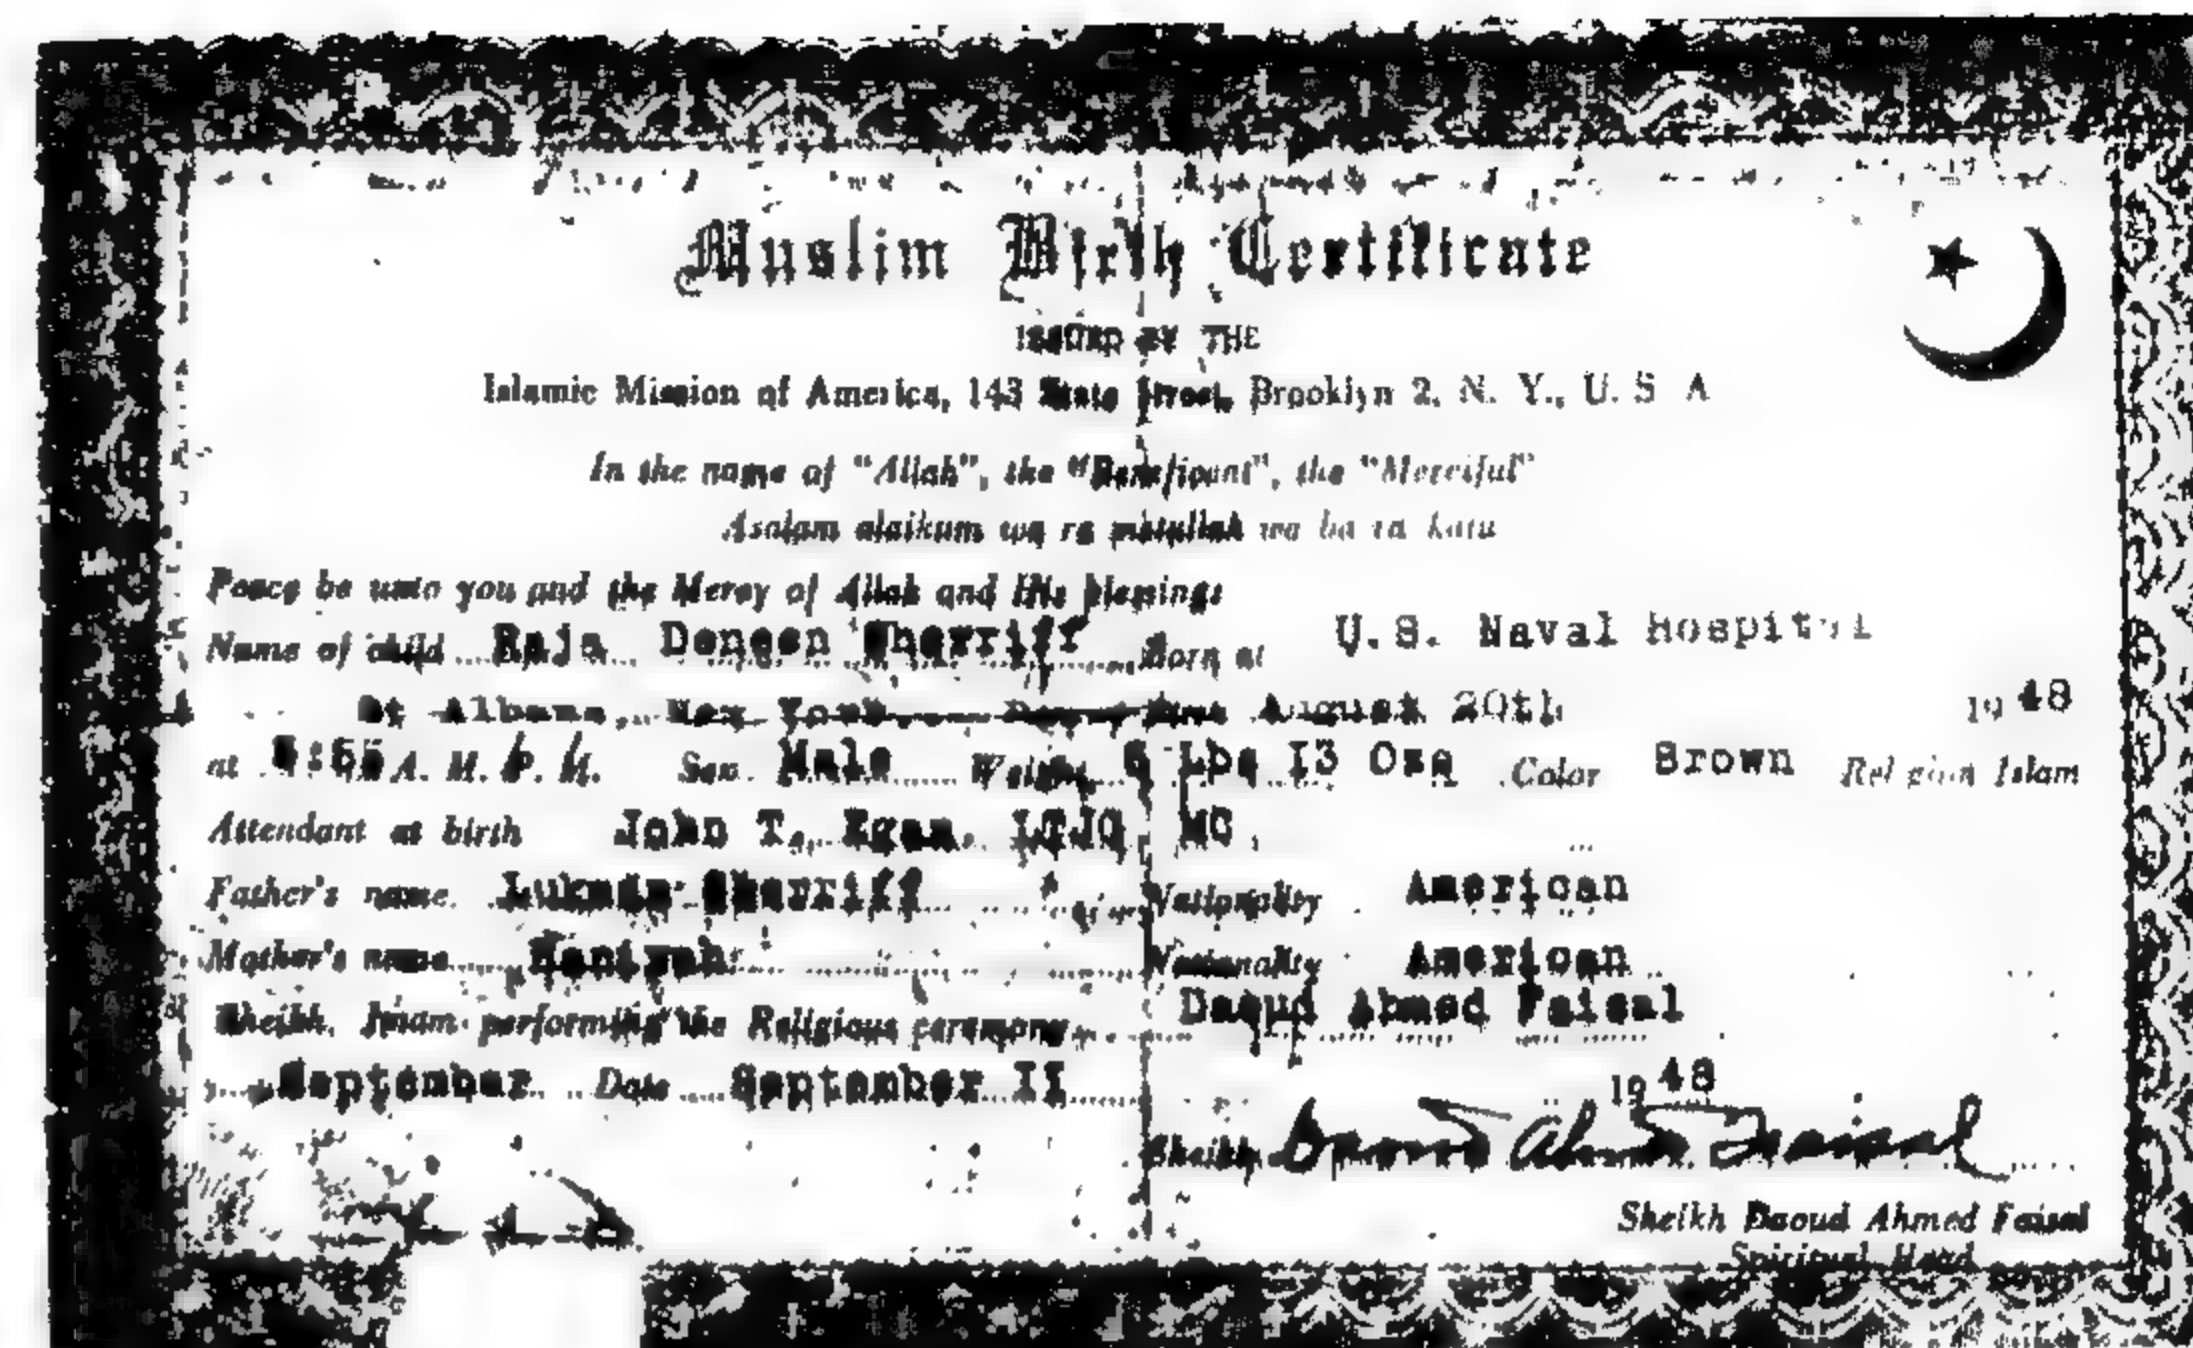 Muslim Birth Certificate
ISSUED BY THE
Islamic Mission of America, 143 State Street, Brooklyn 2, N. Y., U. S A
In the name of "Allah", the "Beneficent", the "Merciful"
Asalam alaikum wa ra matullah wa ba ra katu
Peace be unto you and the Mercy of Allah and His blessings
Name of child Raja Deneen Sherriff Born at U.S. Naval Hospital
St Albans, New York. August 20th 1948
at A. M. P. M. Sex Male Weight Lbs I3 Ozs Color Brown Religion Islam
Attendant at birth John T. Egan, LTJG MC.
Father's name Lukman Sherriff Nationality American
Mother's name Haniyah Nationality American
Sheikh, Imam performing the Religious ceremony Daoud Ahmed Faisal
September Date September II 1948
Sheikh Daoud Ahmed Faisal
Sheikh Daoud Ahmed Faisal
Spiritual Head